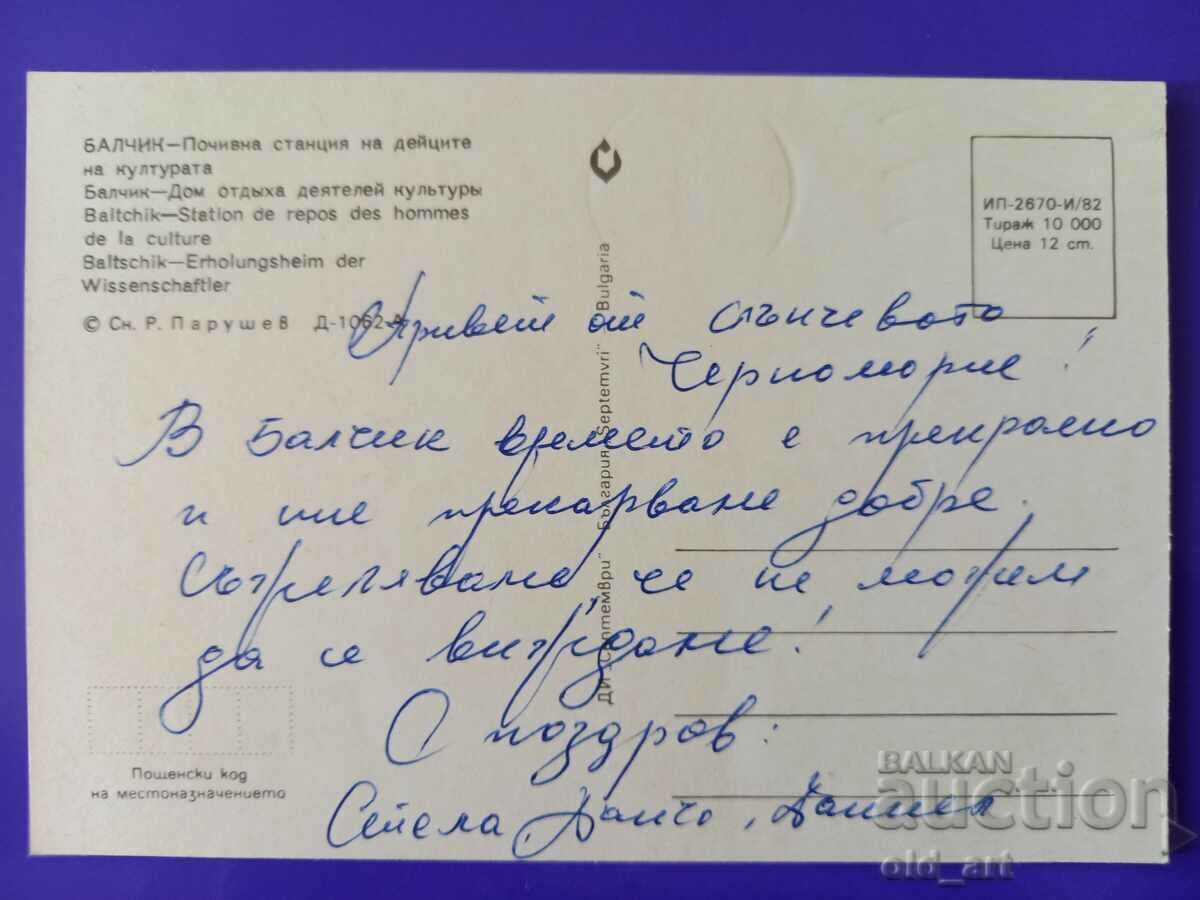 БАЛЧИК—Почивна станция на дейците
на културата
Балчик—Дом отдыха деятелей культуры
Baltchik—Station de repos des hommes
de la culture
Baltschik—Erholungsheim der
Wissenschaftler
© Сн. Р. Парушев Д-1062-А
ДИ „Септември“ България „Septemvri“ - Bulgaria
ИП-2670-И/82
Тираж 10 000
Цена 12 ст.
Привет от слънчевото
Черноморие!
В Балчик времето е прекрасно
и ние прекарваме добре.
Съжеляваме че не можем
да се виждаме!
С поздрав:
Стела, Данчо, Даниел
Пощенски код
на местоназначението
BALKAN
auction
old_art